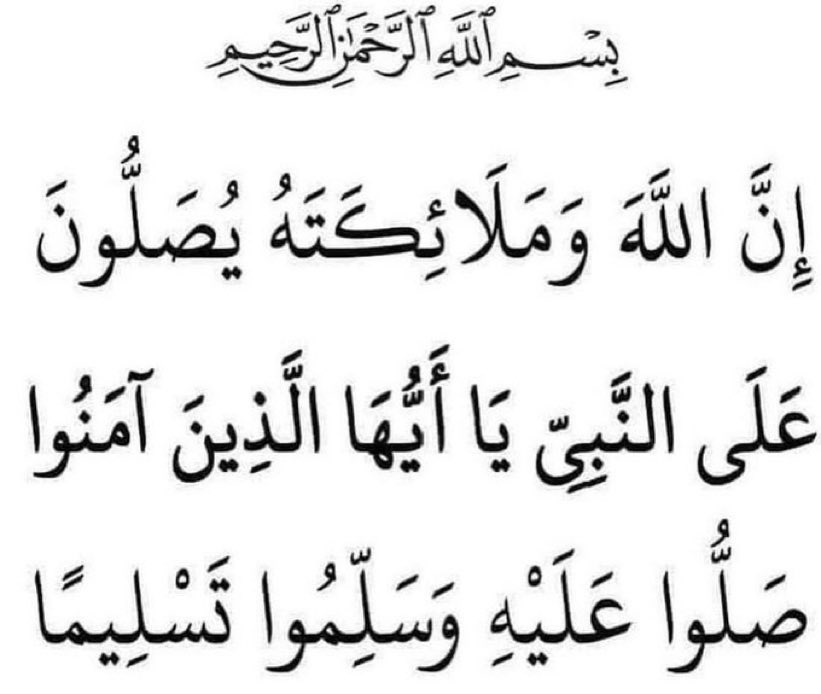 بِسْمِ ٱللَّهِ ٱلرَّحْمَٰنِ ٱلرَّحِيمِ
إِنَّ اللَّهَ وَمَلَائِكَتَهُ يُصَلُّونَ
عَلَى النَّبِيِّ يَا أَيُّهَا الَّذِينَ آمَنُوا
صَلُّوا عَلَيْهِ وَسَلِّمُوا تَسْلِيمًا